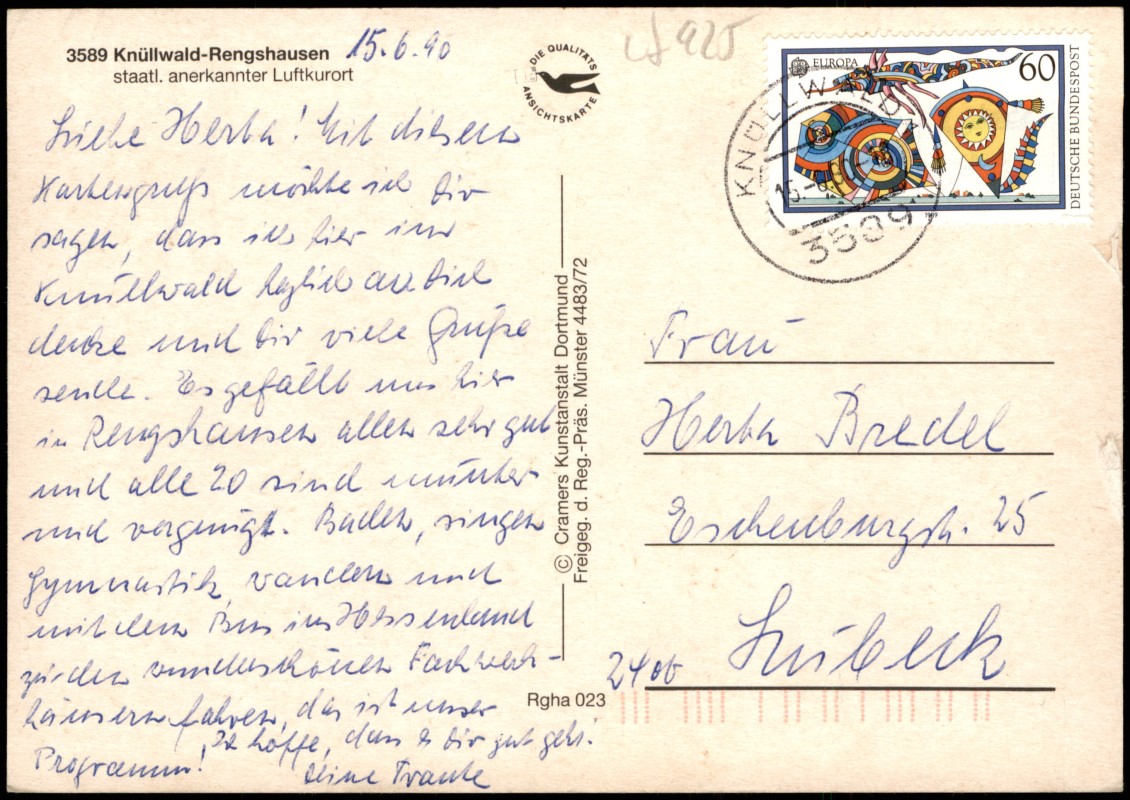 3589 Knüllwald-Rengshausen 15.6.90
staatl. anerkannter Luftkurort
Liebe Herta! Mit diesem
Kartengruß möchte ich Dir
sagen, dass ich hier im
Knüllwald täglich an Dich
denke und Dir viele Grüße
sende. Es gefällt uns hier
in Rengshausen allen sehr gut
und alle 20 sind munter
und vergnügt. Baden, singen
Gymnastik, wandern und
mit dem Bus ins Hessenland
zu den wunderschönen Fachwerk-
häusern fahren, das ist unser
Programm! Ich hoffe, dass es Dir gut geht.
Deine Traute
DIE QUALITÄTS
ANSICHTSKARTE
© Cramers Kunstanstalt Dortmund
Freigeg. d. Reg.-Präs. Münster 4483/72
Rgha 023
925
EUROPA
60
DEUTSCHE BUNDESPOST
1989
KNÜLLWALD 1
15.-6.
3589
Frau
Herta Bredel
Eschenburgstr. 25
2400 Lübeck